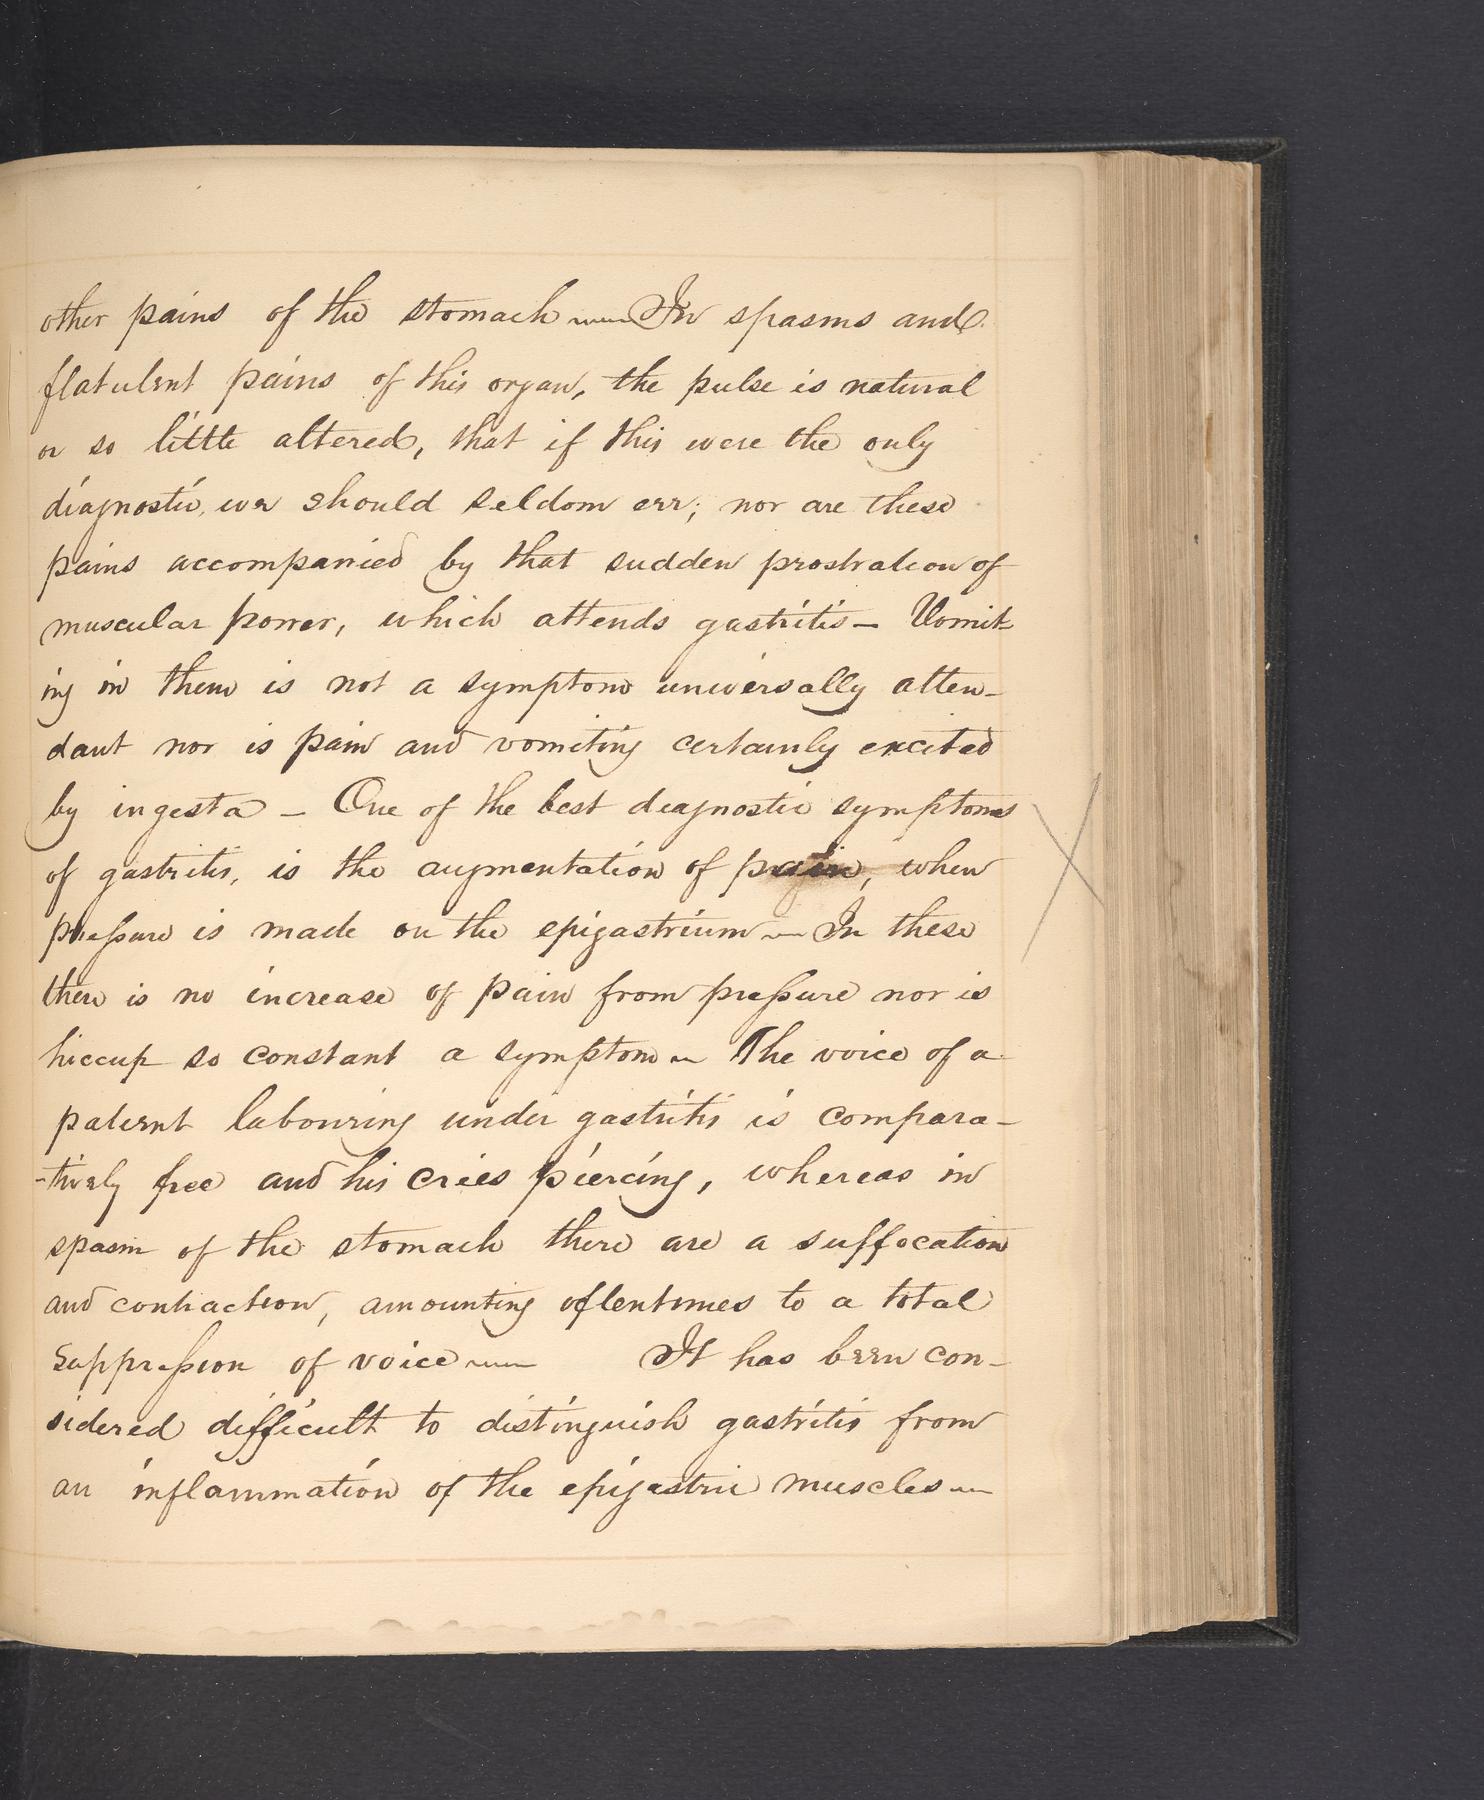 other pains of the stomach — In spasms and
flatulent pains of this organ, the pulse is natural
or so little altered, that if this were the only
diagnostic, we should seldom err; nor are these
pains accompanied by that sudden prostration of
muscular power, which attends gastritis — Vomit-
ing in them is not a symptom universally atten-
dant nor is pain and vomiting certainly excited
by ingesta — One of the best diagnostic symptoms
of gastritis, is the augmentation of pain, when
pressure is made on the epigastrium — In these
there is no increase of pain from pressure nor is
hiccup so constant a symptom — The voice of a
patient labouring under gastritis is compara-
-tively free and his cries piercing, whereas in
spasm of the stomach there are a suffocation
and contraction, amounting oftentimes to a total
suppression of voice — It has been con-
sidered difficult to distinguish gastritis from
an inflammation of the epigastric muscles —